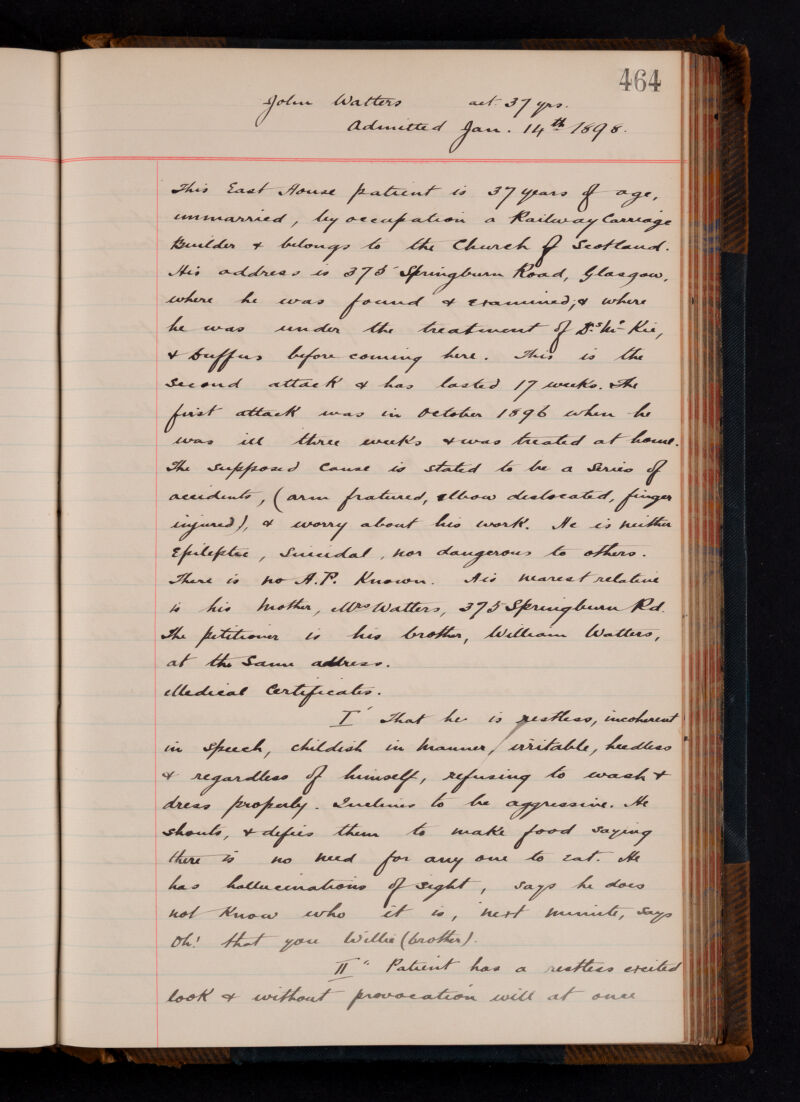 464
John Watters aet. 37 yrs.
Admitted Jan. 14th 1898.
This East House patient is 37 years of age,
unmarried, by occupation a Railway Carriage
Builder & belongs to the Church of Scotland.
His address is 375 Springburn Road, Glasgow,
where he was found & examined, & where
he was under the treatment of Drs McKie,
& Duffus before coming here. This is the
second attack & has lasted 17 weeks. The
first attack was in October 1896 when he
was ill three weeks & was treated at home.
The supposed cause is stated to be a series of
accidents, (arm fratured, elbow dislocated, finger
injured), & worry about his work. He is neither
Epileptic, Suicidal, nor dangerous to others.
There is no A.P. Known. His nearest relative
is his Mother, Mrs Watters, 375 Springburn Rd.
The petitioner is his brother, William Watters,
at the same address.
Medical Certificates.
I' That he is restless, incoherent
in speech, childish in manner, irritable, heedless
& regardless of himself, refusing to wash &
dress properly. Inclines to be aggressive. He
shouts, & defies them to make food saying
there is no need for any one to eat. He
has hallucinations of sight, says he does
not Know who it is, next minute, says
Oh! that you Willie (brother).
II" Patient has a restless excited
look & without provocation will at once